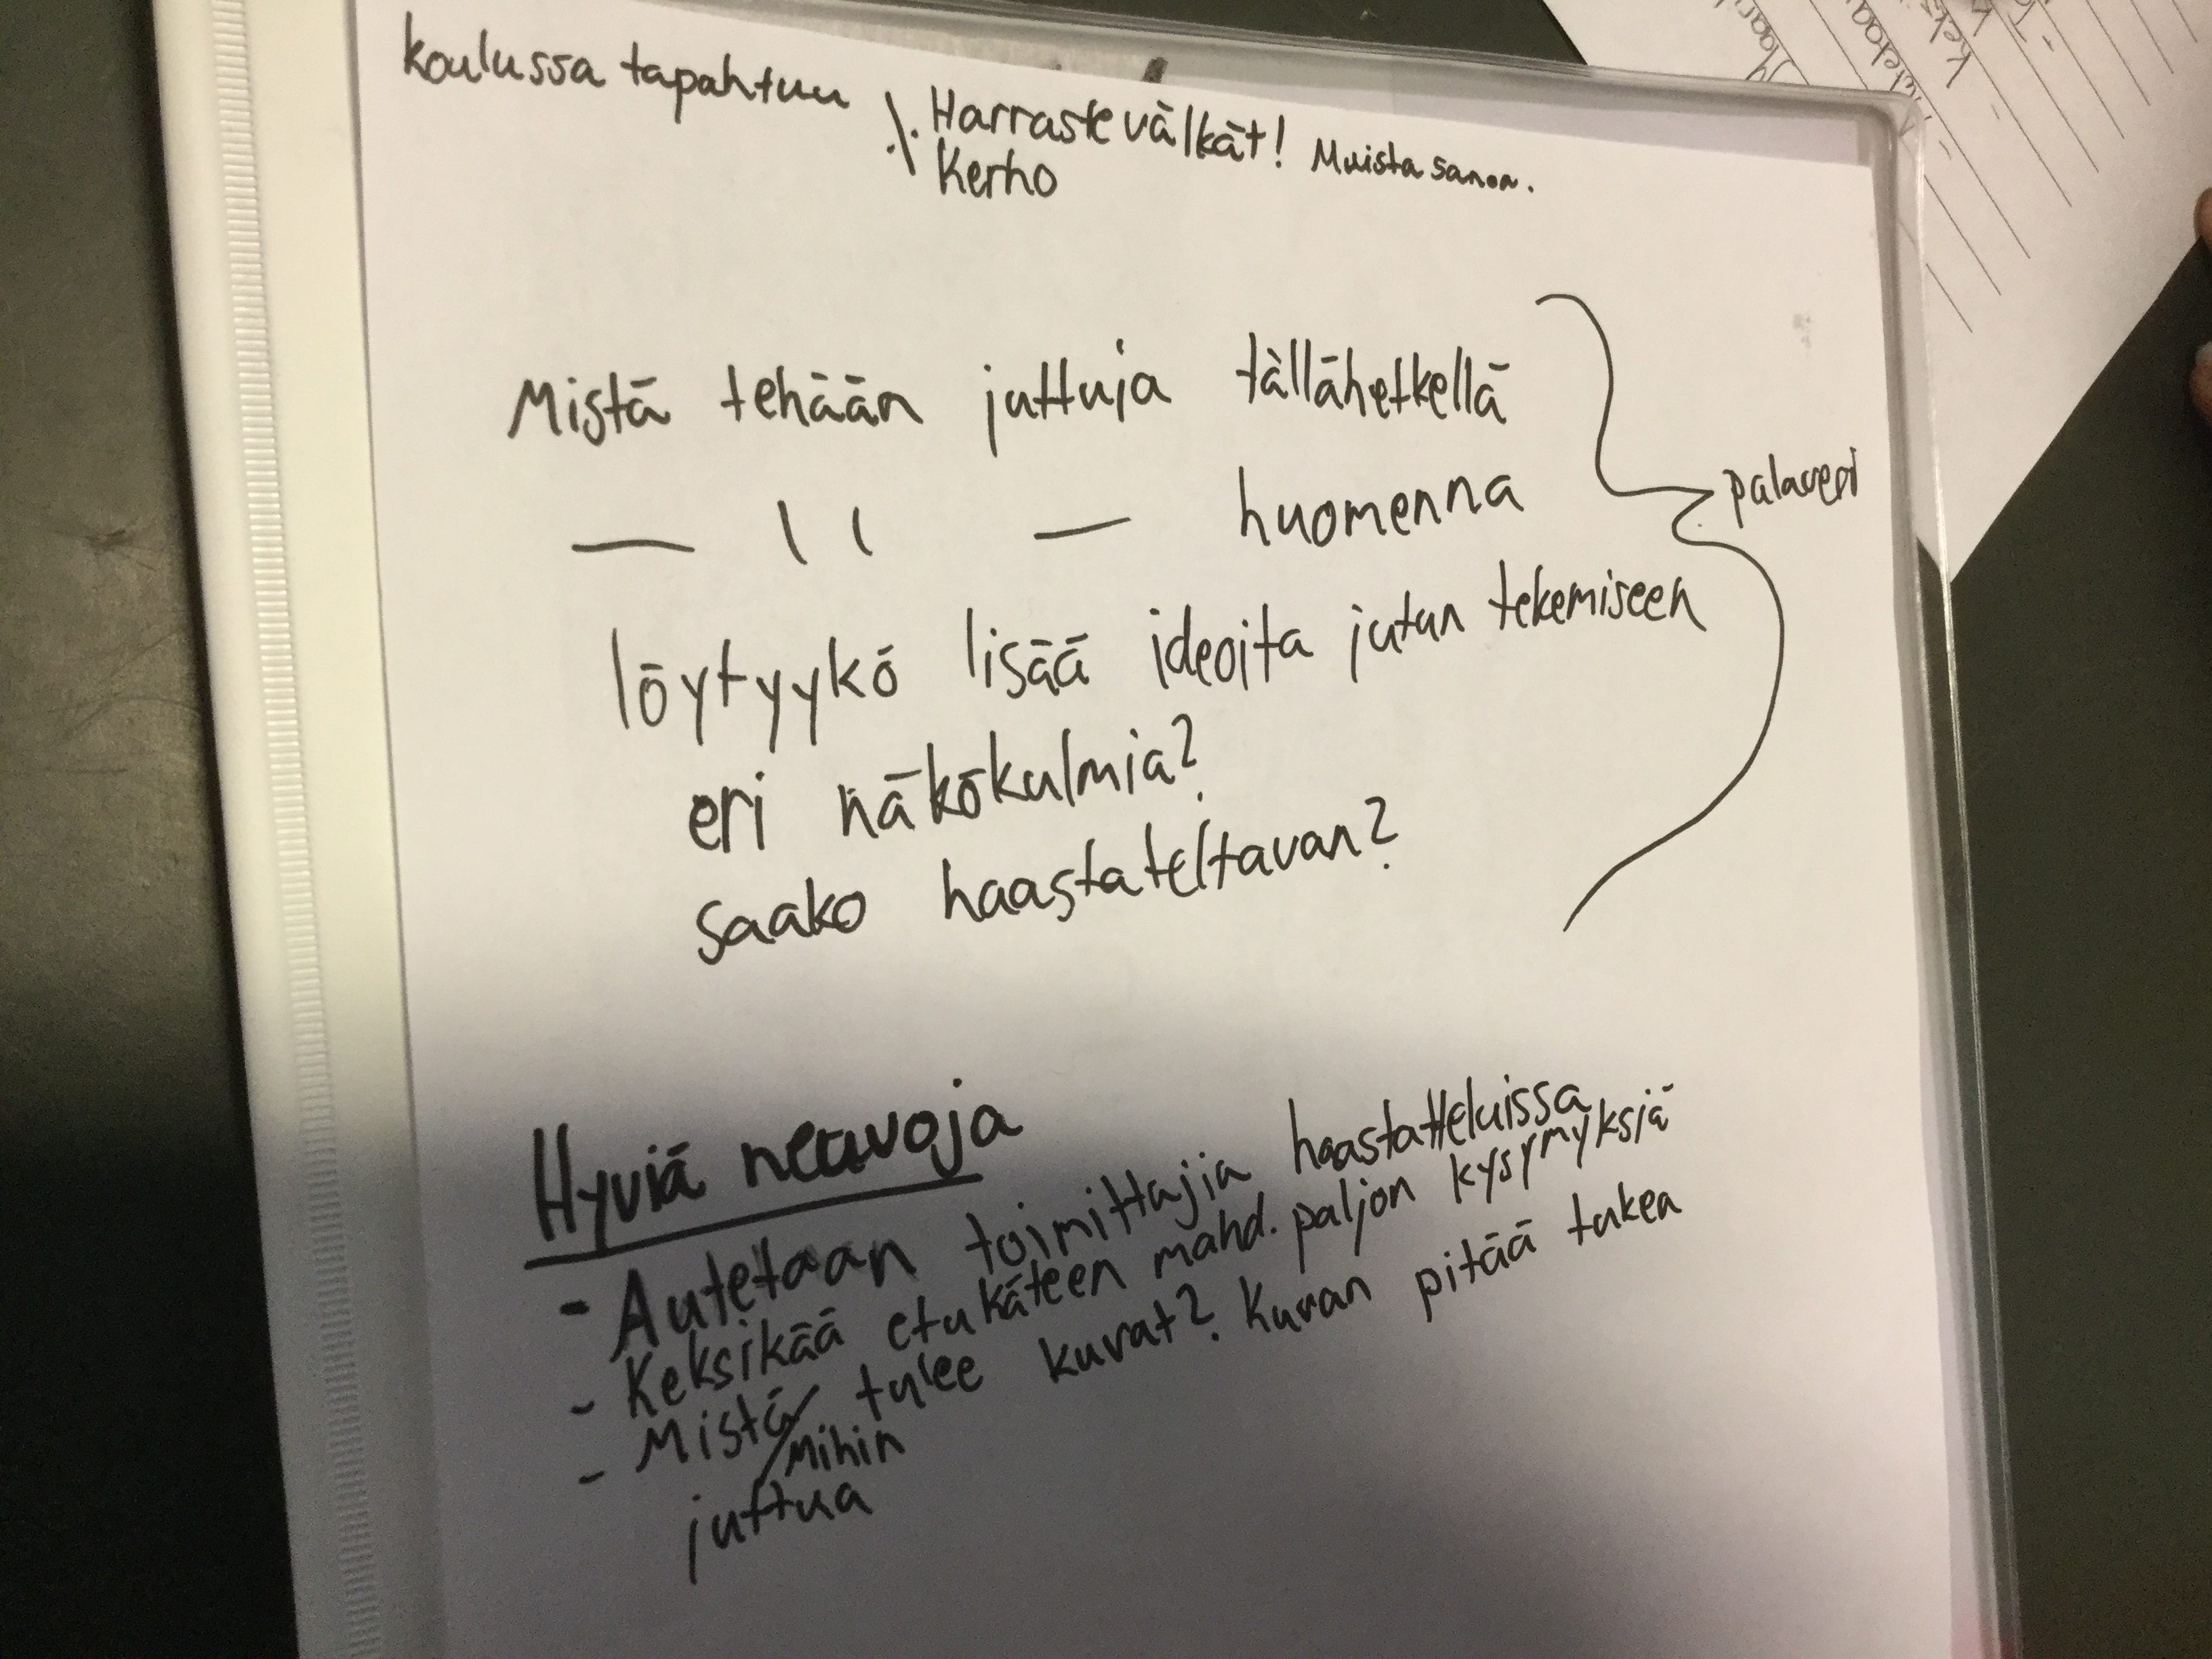 koulussa tapahtuu ·\· Harrastevälkät! Muista sanoa.
Kerho
Mistä tehään juttuja tällähetkellä
— \ \ — huomenna
palaveri
löytyykö lisää ideoita jutun tekemiseen
eri näkökulmia?
saako haastateltavan?
Hyviä neuvoja
- Autetaan toimittajia haastatteluissa
- Keksikää etukäteen mahd. paljon kysymyksiä
- Mistä/Mihin tulee kuvat? Kuvan pitää tukea
juttua